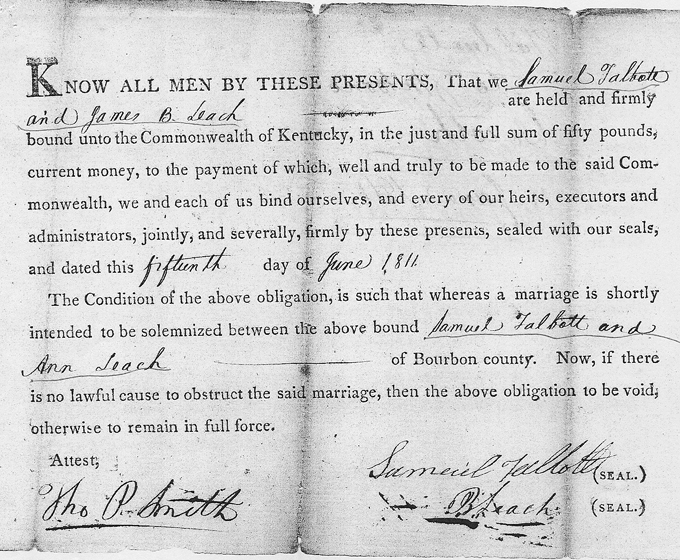 KNOW ALL MEN BY THESE PRESENTS, That we Samuel Talbott
and James B. Leach are held and firmly
bound unto the Commonwealth of Kentucky, in the just and full sum of fifty pounds,
current money, to the payment of which, well and truly to be made to the said Com-
monwealth, we and each of us bind ourselves, and every of our heirs, executors and
administrators, jointly, and severally, firmly by these presents, sealed with our seals,
and dated this fifteenth day of June 1811
The Condition of the above obligation, is such that whereas a marriage is shortly
intended to be solemnized between the above bound Samuel Talbott and
Ann Leach of Bourbon county. Now, if there
is no lawful cause to obstruct the said marriage, then the above obligation to be void;
otherwise to remain in full force.
Attest;
Samuel Talbott (SEAL.)
Tho P. Smith
B Leach (SEAL.)